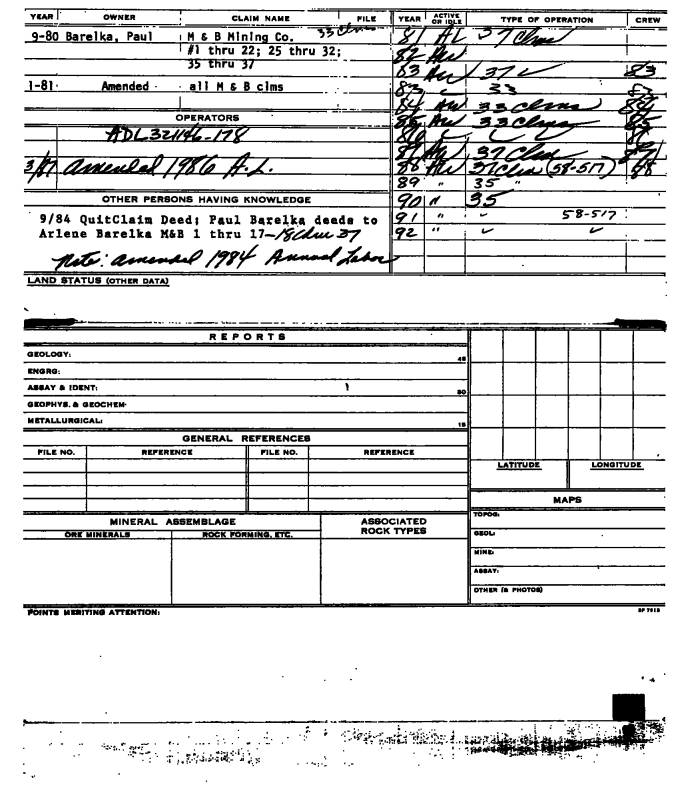 YEAR OWNER CLAIM NAME FILE
9-80 Barelka, Paul M & B Mining Co. 33 Clms
#1 thru 22; 25 thru 32;
35 thru 37
1-81 Amended all M & B clms
OPERATORS
ADL 321146-178
3/87 amended 1986 A.L.
OTHER PERSONS HAVING KNOWLEDGE
9/84 QuitClaim Deed; Paul Barelka deeds to
Arlene Barelka M&B 1 thru 17-18 thru 37
Note: amended 1984 Annual Labor
LAND STATUS (OTHER DATA)
YEAR ACTIVE OR IDLE TYPE OF OPERATION CREW
81 AL 37 Clms
82
83 37 ✓ 83
83 ✓ 33 83
84 33 Clms 84
85 33 Clms 85
86 ✓ ✓ ✓ 86
87 37 Clms 87
88 37 Clms (58-517) 88
89 " 35 "
90 " 35
91 " ✓ 58-517
92 " ✓ ✓
REPORTS
GEOLOGY: 45
ENGRG:
ASSAY & IDENT: 30
GEOPHYS. & GEOCHEM:
METALLURGICAL: 15
GENERAL REFERENCES
FILE NO. REFERENCE FILE NO. REFERENCE
MINERAL ASSEMBLAGE ASSOCIATED ROCK TYPES
ORE MINERALS ROCK FORMING, ETC.
LATITUDE LONGITUDE
MAPS
TOPOG:
GEOL:
MINE:
ASSAY:
OTHER (& PHOTOS)
POINTS MERITING ATTENTION: